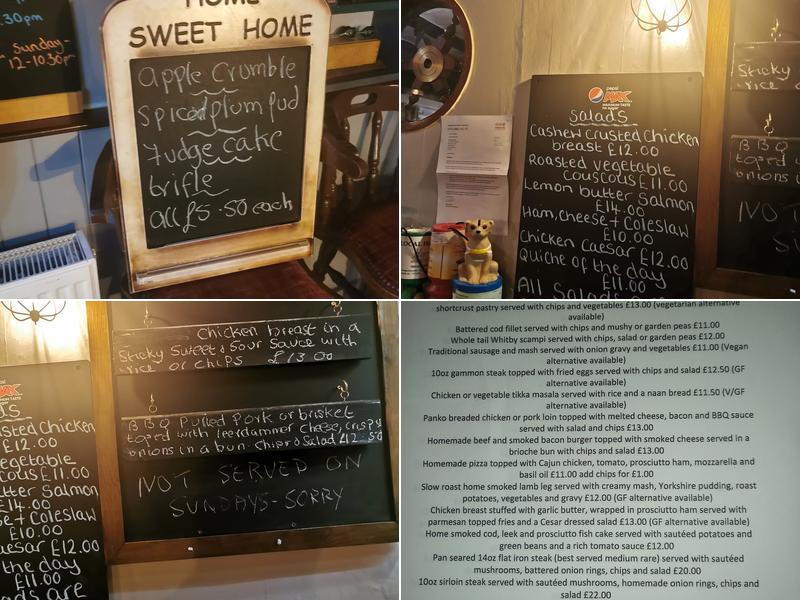 HOME
SWEET HOME
Apple Crumble
Spiced plum pud
Fudge cake
trifle
all £5.50 each
.30pm
Sunday-
12-10.30p
pepsi
MAX
MAXIMUM TASTE
NO SUGAR
Salads
Cashew crusted chicken
breast £12.00
Roasted vegetable
couscous £11.00
Lemon butter salmon
£14.00
Ham, cheese + Coleslaw
£10.00
Chicken Caesar £12.00
Quiche of the day
£11.00
All Salads are
Sticky
BBQ
topped
onions i
NOT
S
Chicken breast in a
Sticky Sweet & Sour Sauce with
rice or chips £13.00
BBQ Pulled Pork or brisket
toped with leerdammer cheese, crispy
onions in a bun. Chips & Salad £12.50
NOT SERVED ON
SUNDAYS-SORRY
d's
usted chicken
£12.00
vegetable
cous £11.00
tter salmon
£14.00
se + Coleslaw
£10.00
aesar £12.00
the day
£11.00
ads are
shortcrust pastry served with chips and vegetables £13.00 (vegetarian alternative
available)
Battered cod fillet served with chips and mushy or garden peas £11.00
Whole tail Whitby scampi served with chips, salad or garden peas £12.00
Traditional sausage and mash served with onion gravy and vegetables £11.00 (Vegan
alternative available)
10oz gammon steak topped with fried eggs served with chips and salad £12.50 (GF
alternative available)
Chicken or vegetable tikka masala served with rice and a naan bread £11.50 (V/GF
alternative available)
Panko breaded chicken or pork loin topped with melted cheese, bacon and BBQ sauce
served with salad and chips £13.00
Homemade beef and smoked bacon burger topped with smoked cheese served in a
brioche bun with chips and salad £13.00
Homemade pizza topped with Cajun chicken, tomato, prosciutto ham, mozzarella and
basil oil £11.00 add chips for £1.00
Slow roast home smoked lamb leg served with creamy mash, Yorkshire pudding, roast
potatoes, vegetables and gravy £12.00 (GF alternative available)
Chicken breast stuffed with garlic butter, wrapped in prosciutto ham served with
parmesan topped fries and a Cesar dressed salad £13.00 (GF alternative available)
Home smoked cod, leek and prosciutto fish cake served with sautéed potatoes and
green beans and a rich tomato sauce £12.00
Pan seared 14oz flat iron steak (best served medium rare) served with sautéed
mushrooms, battered onion rings, chips and salad £20.00
10oz sirloin steak served with sautéed mushrooms, homemade onion rings, chips and
salad £22.00